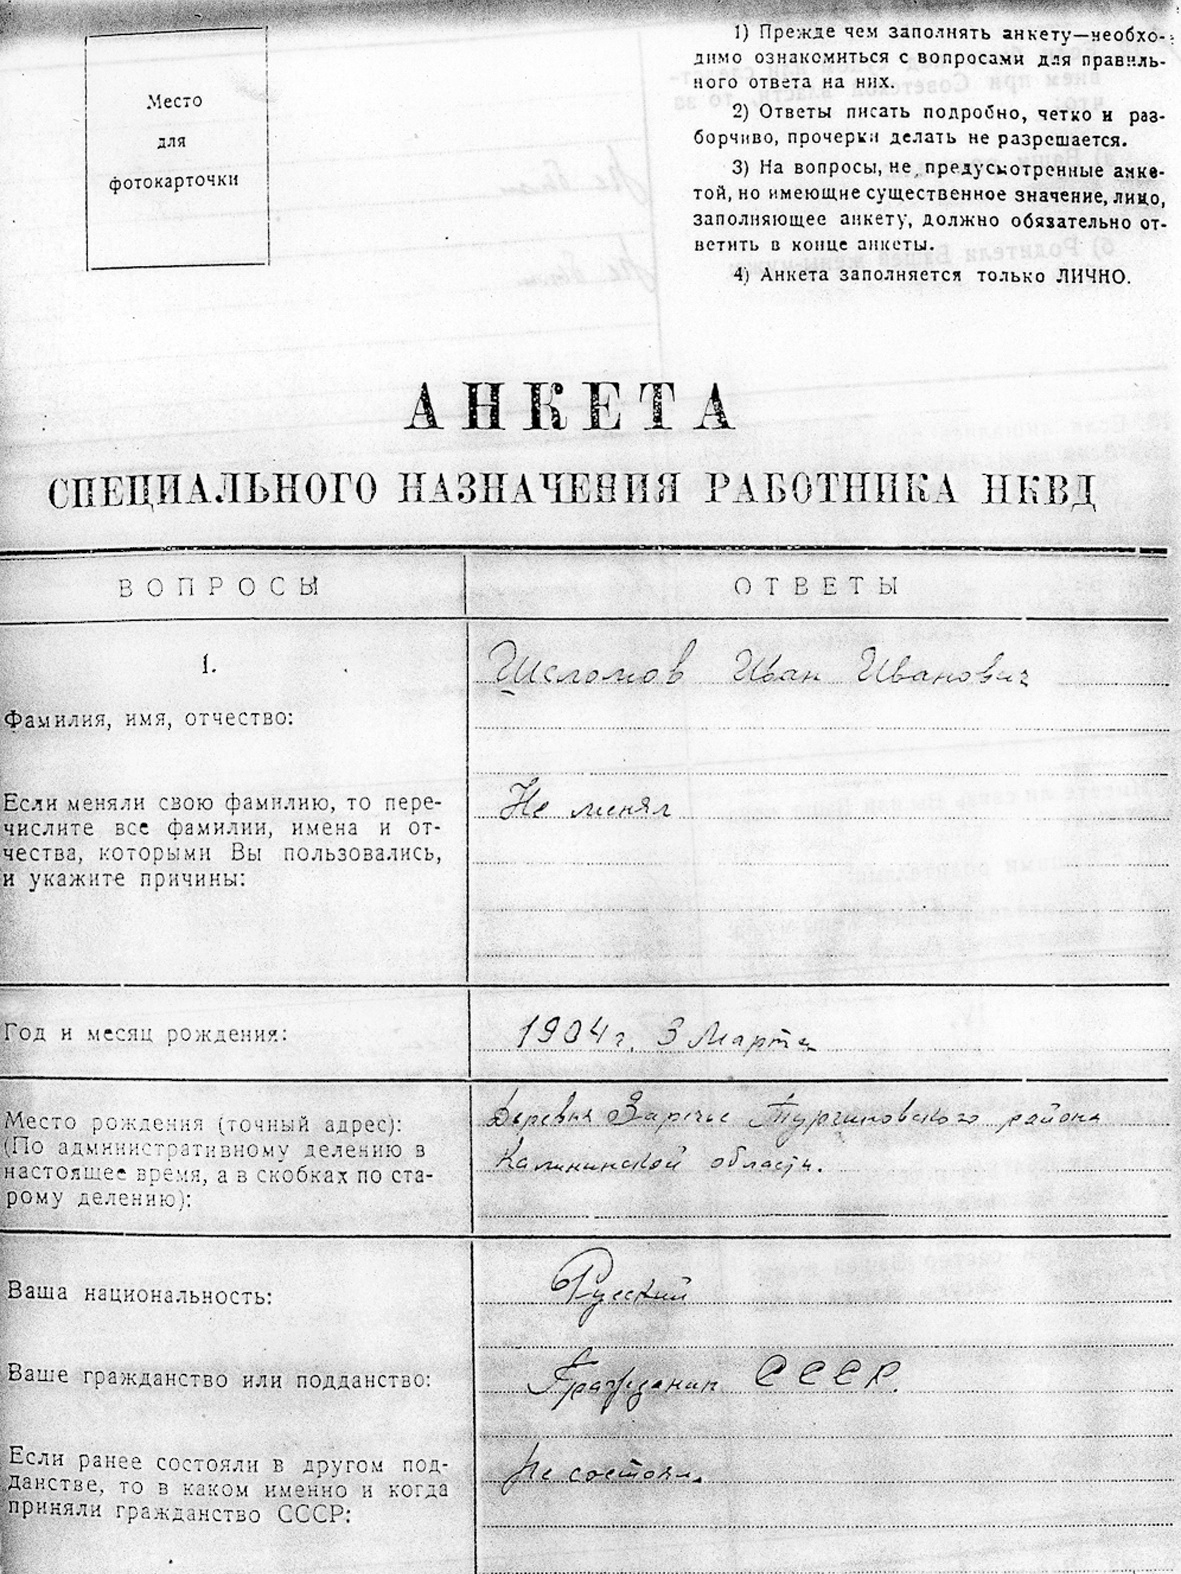 Место
для
фотокарточки
1) Прежде чем заполнять анкету—необхо-
димо ознакомиться с вопросами для правиль-
ного ответа на них.
2) Ответы писать подробно, четко и раз-
борчиво, прочерки делать не разрешается.
3) На вопросы, не предусмотренные анке-
той, но имеющие существенное значение, лицо,
заполняющее анкету, должно обязательно от-
ветить в конце анкеты.
4) Анкета заполняется только ЛИЧНО.
АНКЕТА
СПЕЦИАЛЬНОГО НАЗНАЧЕНИЯ РАБОТНИКА НКВД
ВОПРОСЫ
ОТВЕТЫ
1.
Фамилия, имя, отчество:
Шеломов Иван Иванович
Если меняли свою фамилию, то пере-
числите все фамилии, имена и от-
чества, которыми Вы пользовались,
и укажите причины:
Не менял
Год и месяц рождения:
1904 г. 3 Марта
Место рождения (точный адрес):
(По административному делению в
настоящее время, а в скобках по ста-
рому делению):
Деревня Заречье Тургиновского района
Калининской области.
Ваша национальность:
Русский
Ваше гражданство или подданство:
Гражданин СССР.
Если ранее состояли в другом под-
данстве, то в каком именно и когда
приняли гражданство СССР:
Не состоял.